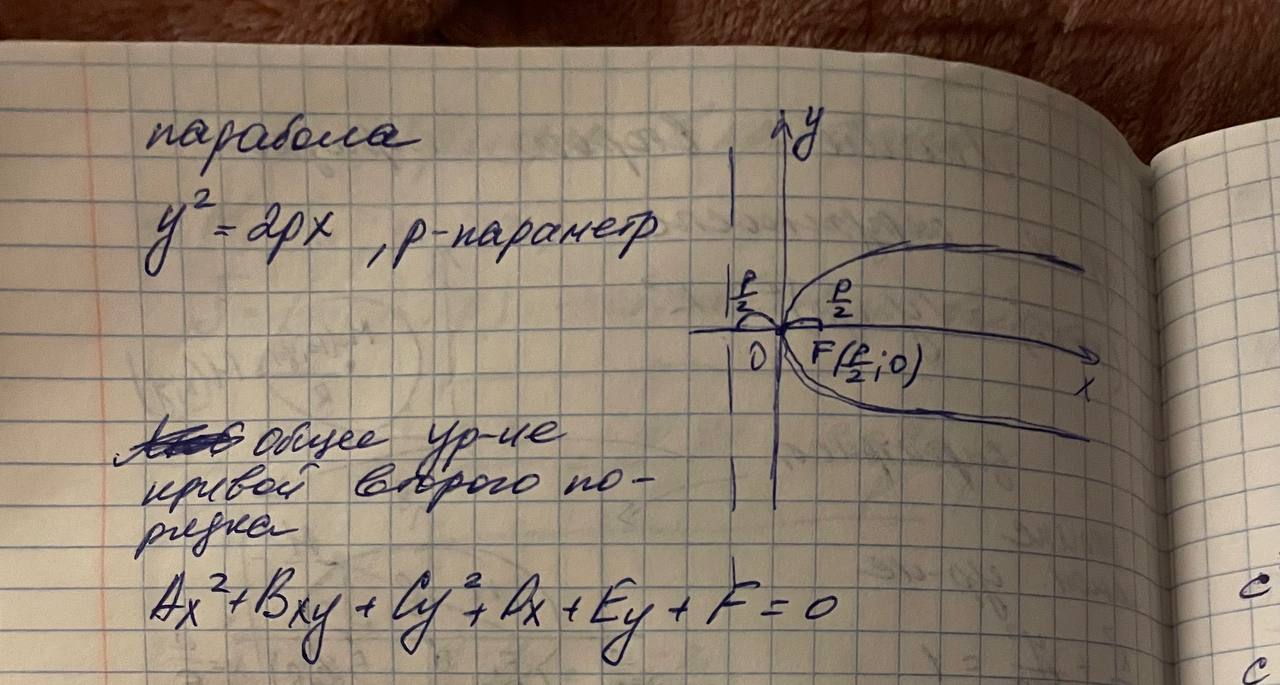 парабола
y² = 2px , p-параметр
y
p/2
p/2
0
F(p/2; 0)
x
общее ур-ие
кривой второго по-
рядка
Ax² + Bxy + Cy² + Dx + Ey + F = 0
c
c